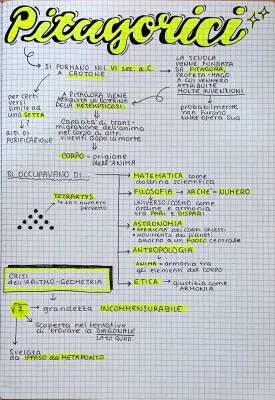 Pitagorici
SI FORMANO NEL VI sec. a.C.
A CROTONE
LA SCUOLA
VENNE FONDATA
DA PITAGORA,
PROFETA-MAGO
A CUI VENNERO
ATTRIBUITE
MOLTE INVENZIONI
probabilmente
non furono
tutte opera sua
per certi
versi
simile ad
una SETTA
RITI DI
PURIFICAZIONE
A PITAGORA VIENE
ATTRIBUITA LA DOTTRINA
DELLA METEMPSICOSI
Capacità di trans-
migrazione dell'anima
nel corpo di altri
viventi dopo la morte
CORPO = prigione
dell'ANIMA
SI OCCUPAVANO DI...
TETRAKTYS
10 è il numero
perfetto
MATEMATICA come
dottrina scientifica
FILOSOFIA → ARCHÈ = NUMERO
UNIVERSO/COSMO come
ordine e armonia
tra PARI e DISPARI
ASTRONOMIA
• SFERICITÀ dei corpi celesti
• MOVIMENTO dei pianeti
attorno a un FUOCO centrale
ANTROPOLOGIA
ANIMA = armonia tra
gli elementi del CORPO
ETICA → giustizia come
ARMONIA
CRISI
dell'ARITMO-GEOMETRIA
√2 > grandezza INCOMMENSURABILE
Scoperta nel tentativo
di trovare la DIAGONALE
LATO QUAD.
Svelata
da IPPASO DA METAPONTO